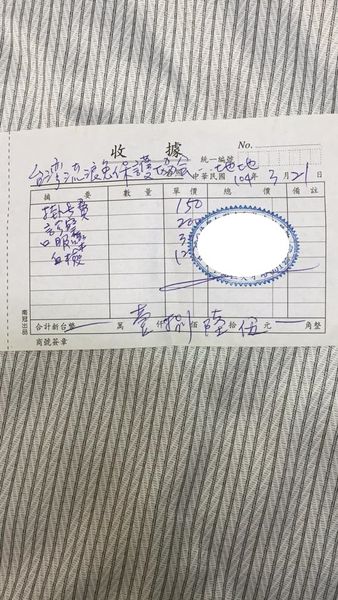 收據
No.
台灣流浪兔保護協會 統一編號
地地
中華民國 104年 3月 21日
摘要 數量 單價 總價 備註
掛號費 150
診察 200
口服藥 3
血檢 12
合計新台幣 萬 壹仟 捌佰 陸拾 伍元 角整
商號簽章
南冠出品